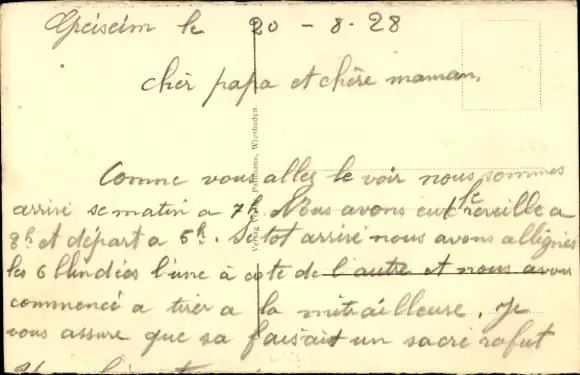 Greiseim le 20 - 8 - 28
cher papa et chère maman,
Comme vous allez le voir nous sommes
arrivé se matin a 7h. Nous avons eut le reveille a
8h et départ a 5h. Sitot arrisé nous avons allignés
les 6 blindées l'une à cote de l'autre et nous avons
commencé a tirer a la mitrailleuse. Je
vous assure que sa faisait un sacré rafut
Verlag Pallmann, Wiesbaden.